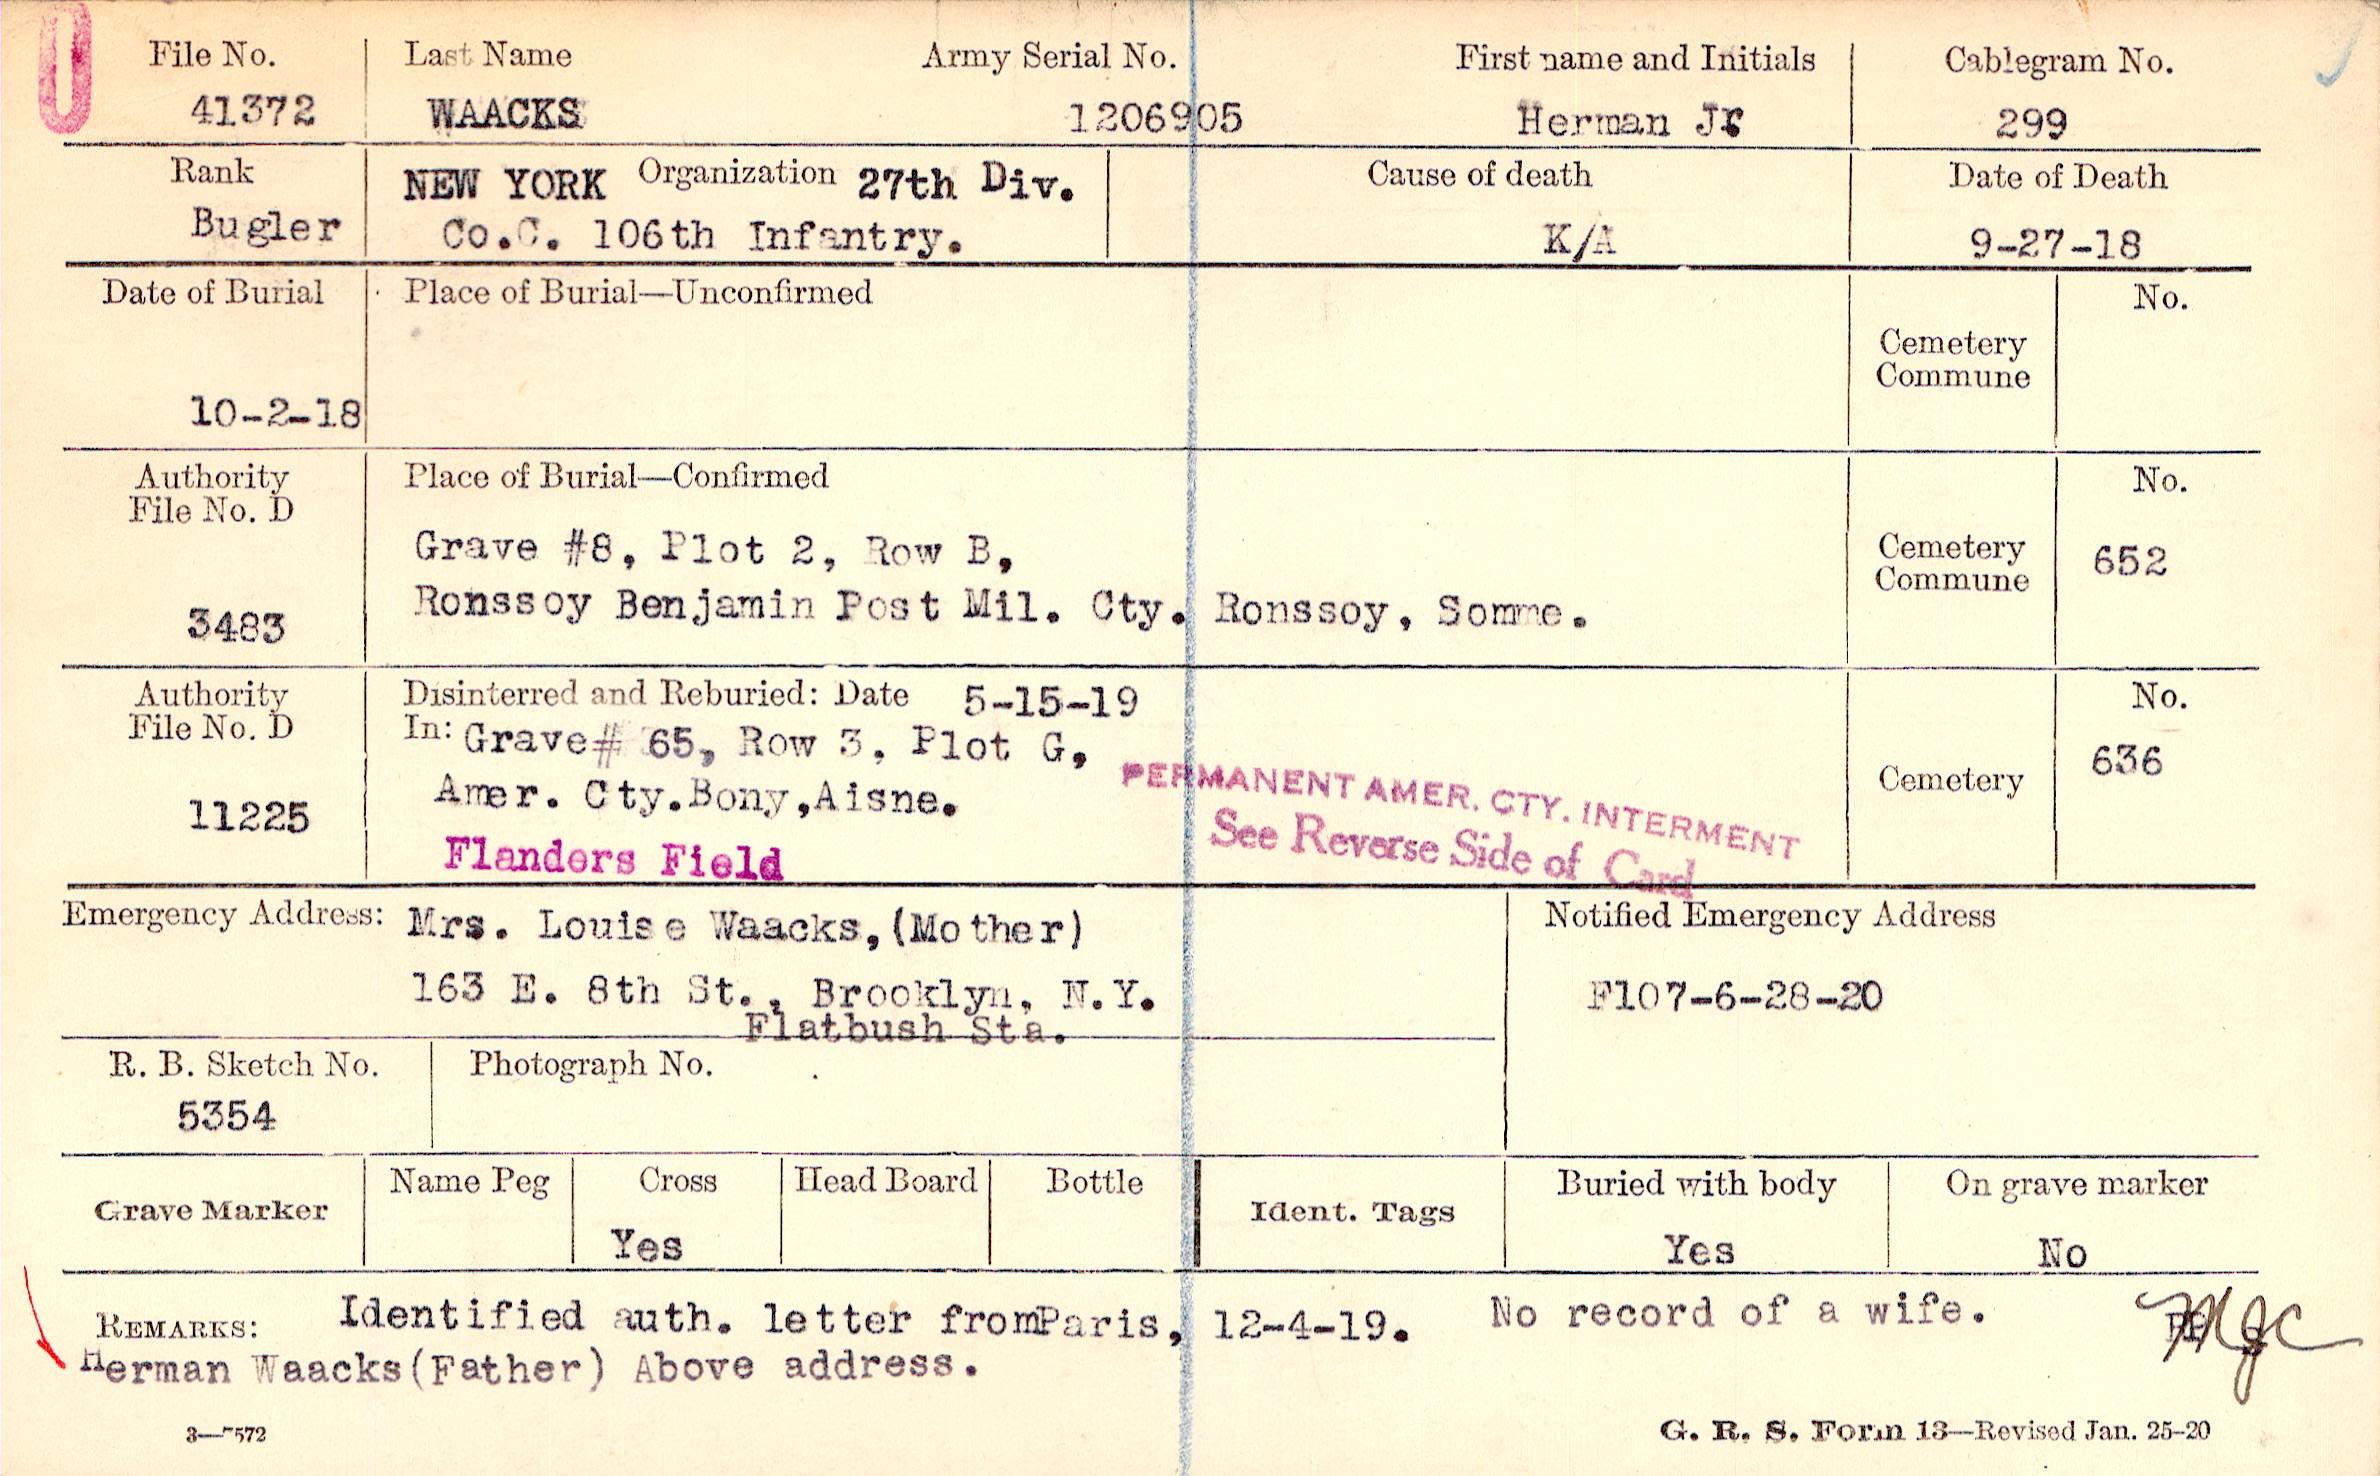 File No. Last Name Army Serial No. First name and Initials Cablegram No.
41372 WAACKS 1206905 Herman Jr 299
Rank NEW YORK Organization 27th Div. Cause of death Date of Death
Bugler Co.C. 106th Infantry. K/A 9-27-18
Date of Burial Place of Burial—Unconfirmed No.
Cemetery
Commune
10-2-18
Authority Place of Burial—Confirmed No.
File No. D
Grave #8, Plot 2, Row B, Cemetery 652
Commune
3483 Ronssoy Benjamin Post Mil. Cty. Ronssoy, Somme.
Authority Disinterred and Reburied: Date 5-15-19 No.
File No. D In: Grave# 65, Row 3, Plot G, 636
PERMANENT AMER. CTY. INTERMENT
11225 Amer. Cty.Bony,Aisne. Cemetery
See Reverse Side of Card
Flanders Field
Emergency Address: Mrs. Louise Waacks,(Mother) Notified Emergency Address
163 E. 8th St., Brooklyn, N.Y. F107-6-28-20
Flatbush Sta.
R. B. Sketch No. Photograph No.
5354
Grave Marker Name Peg Cross Head Board Bottle Ident. Tags Buried with body On grave marker
Yes Yes No
REMARKS: Identified auth. letter fromParis, 12-4-19. No record of a wife. MJC
Herman Waacks(Father) Above address.
G. R. S. Form 13—Revised Jan. 25-20